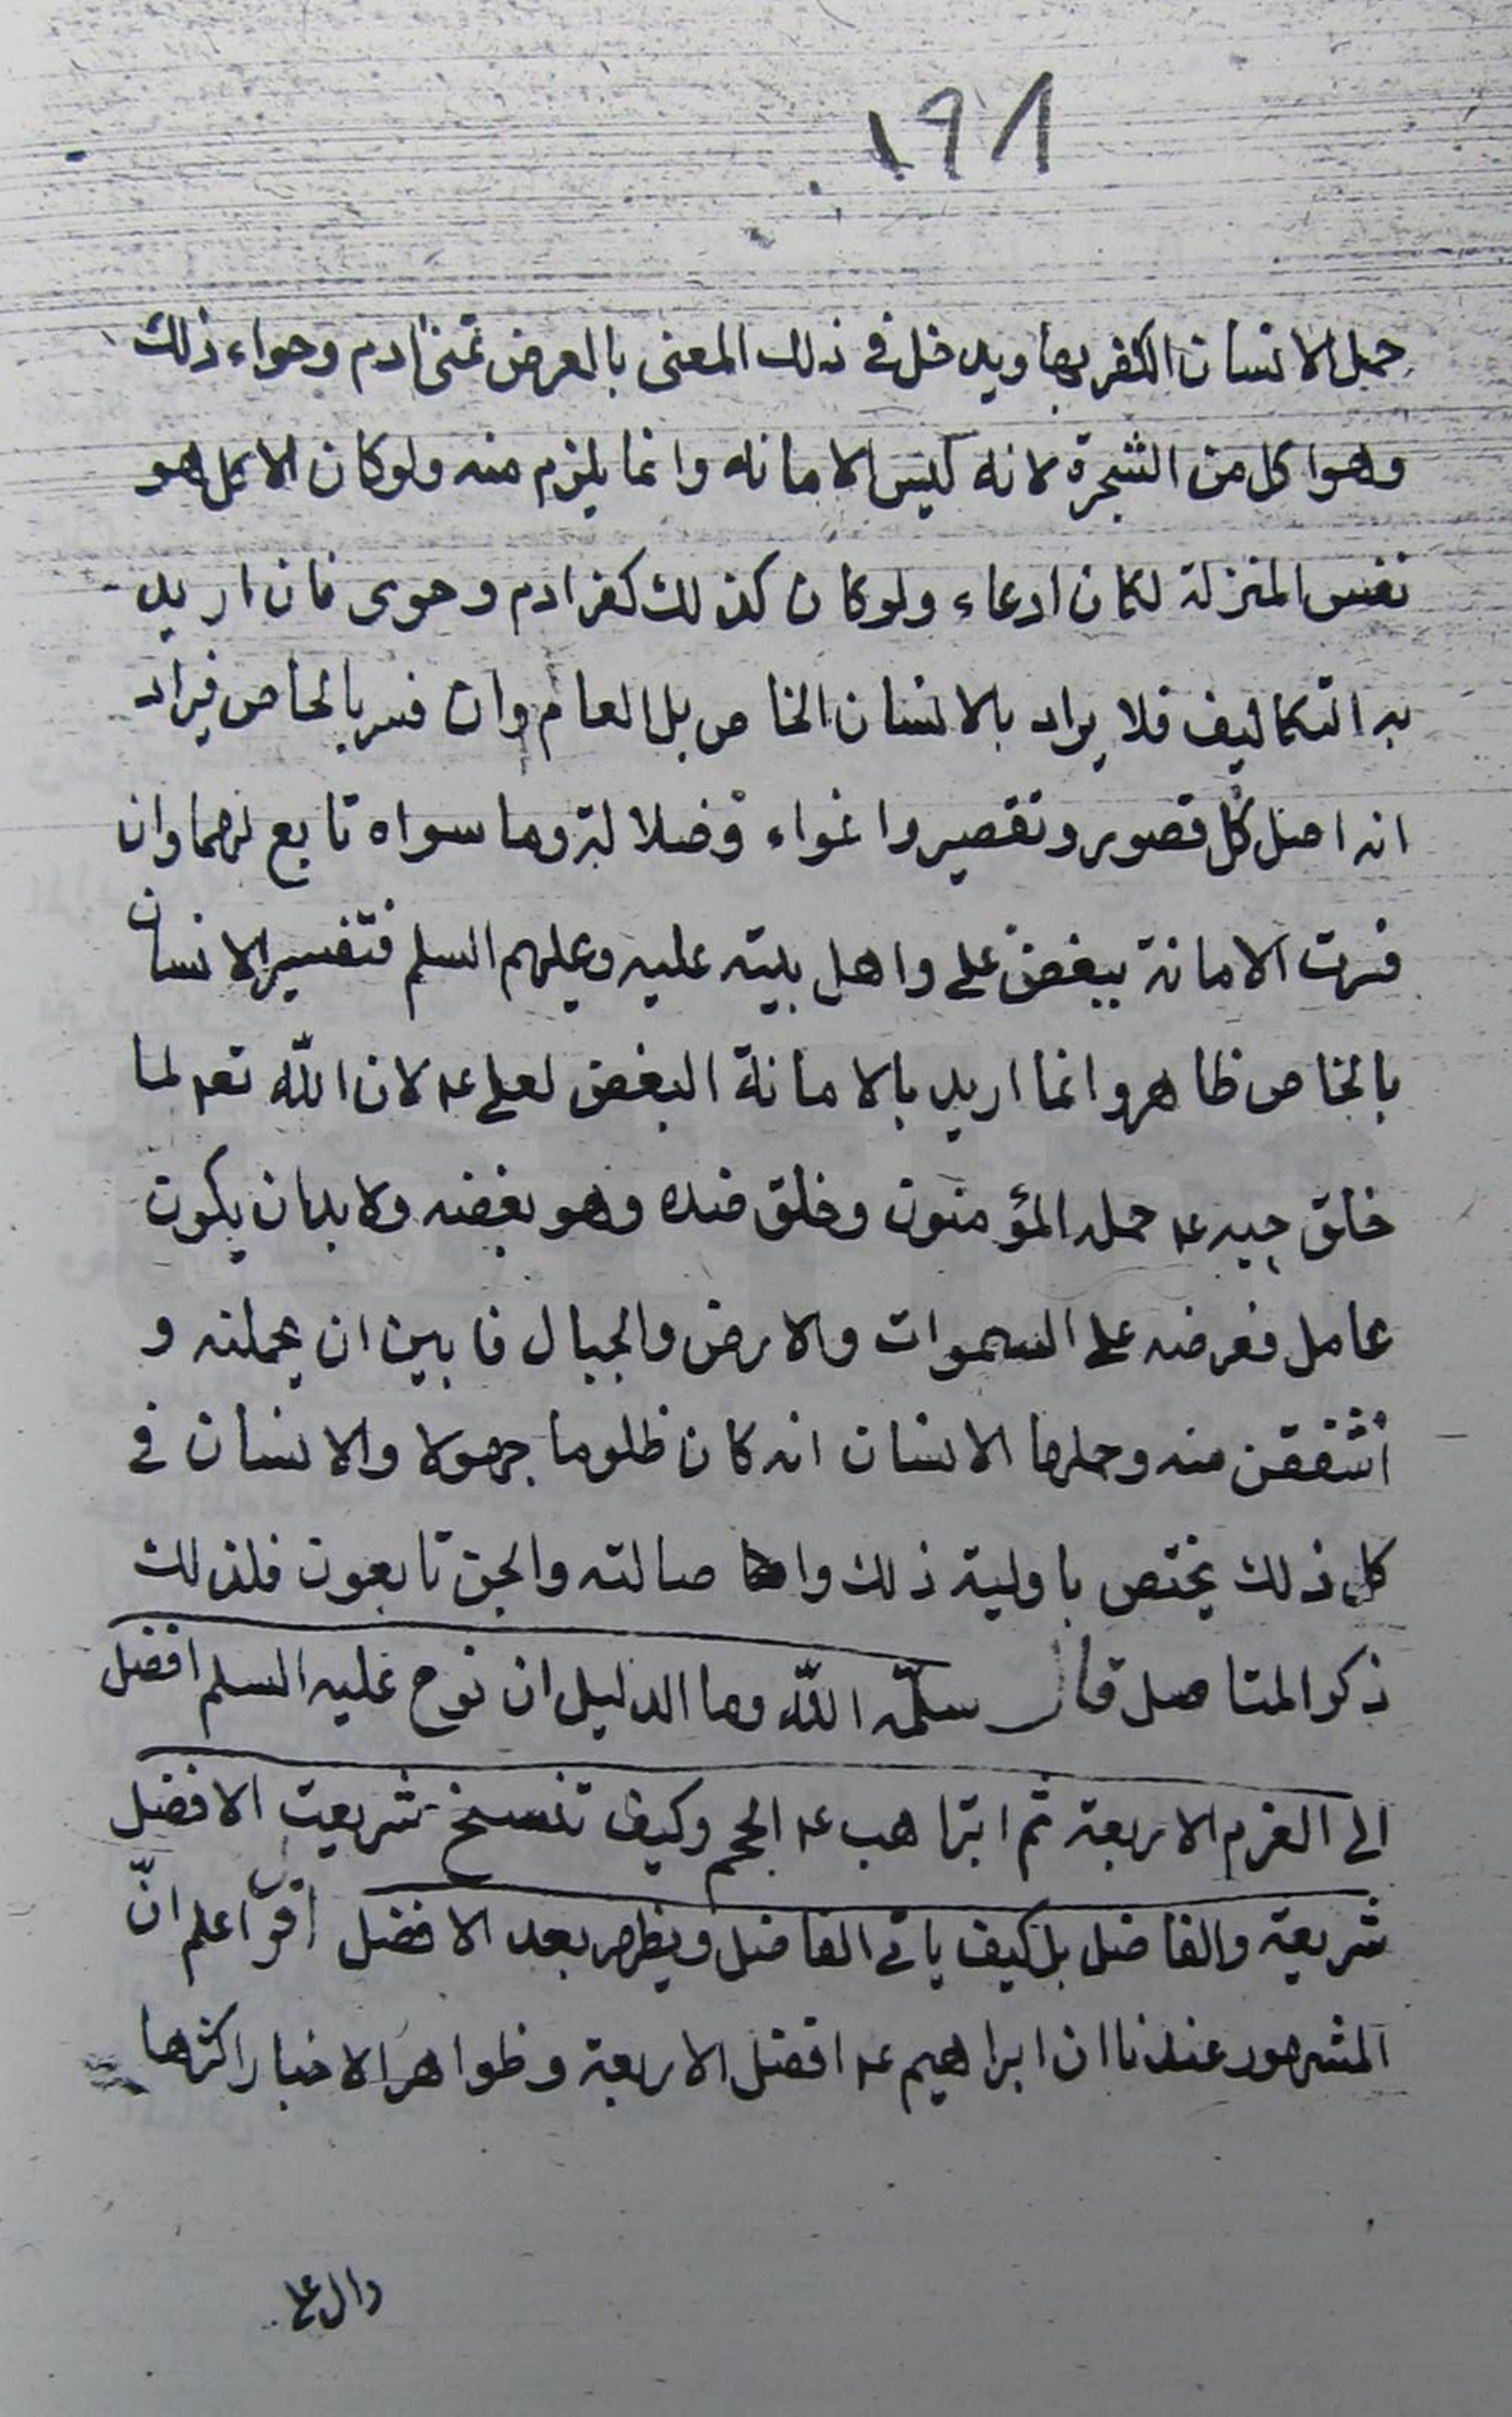 ١٩٨
حمل الانسان الكفر بها ويدخل في ذلك المعنى بالعرض تمنى ادم وحواء ذلك
وهو اكل من الشجرة لانه ليس الامانة وانما يلزم منه ولو كان الاكل هو
نفس المنزلة لكان ادعاء ولو كان كذلك كفر ادم وحوى فان اريد
به التكاليف فلا يراد بالانسان الخاص بل العام وان فسر بالخاص فيراد
انه اصل كل قصور وتقصير واغواء وضلالة وما سواه تابع لهما وان
فسرت الامانة ببغض علي واهل بيته عليه وعليهم السلم فتفسير الانسان
بالخاص ظاهر وانما اريد بالامانة البغض لعلي ع لان الله تعه لما
خلق حبه ع حمله المؤمنون وخلق ضده وهو بغضه ولا بد ان يكون
عامل فعرضه على السموات والارض والجبال فابين ان يحملنه و
اشفقن منه وحملها الانسان انه كان ظلوما جهولا والانسان في
كل ذلك يختص باولية ذلك واصالته والجن تابعون فلذلك
ذكر المتاصل قال سلمه الله وما الدليل ان نوح عليه السلم افضل
الى العزم الاربعة ثم ابراهيم ع الجحم وكيف تنسخ شريعت الافضل
شريعة والفاضل بل كيف ياتي الفاضل ويظهر بعد الافضل اقول اعلم انّ
المشهور عندنا ان ابراهيم ع افضل الاربعة وظواهر الاخبار اكثرها
دال على